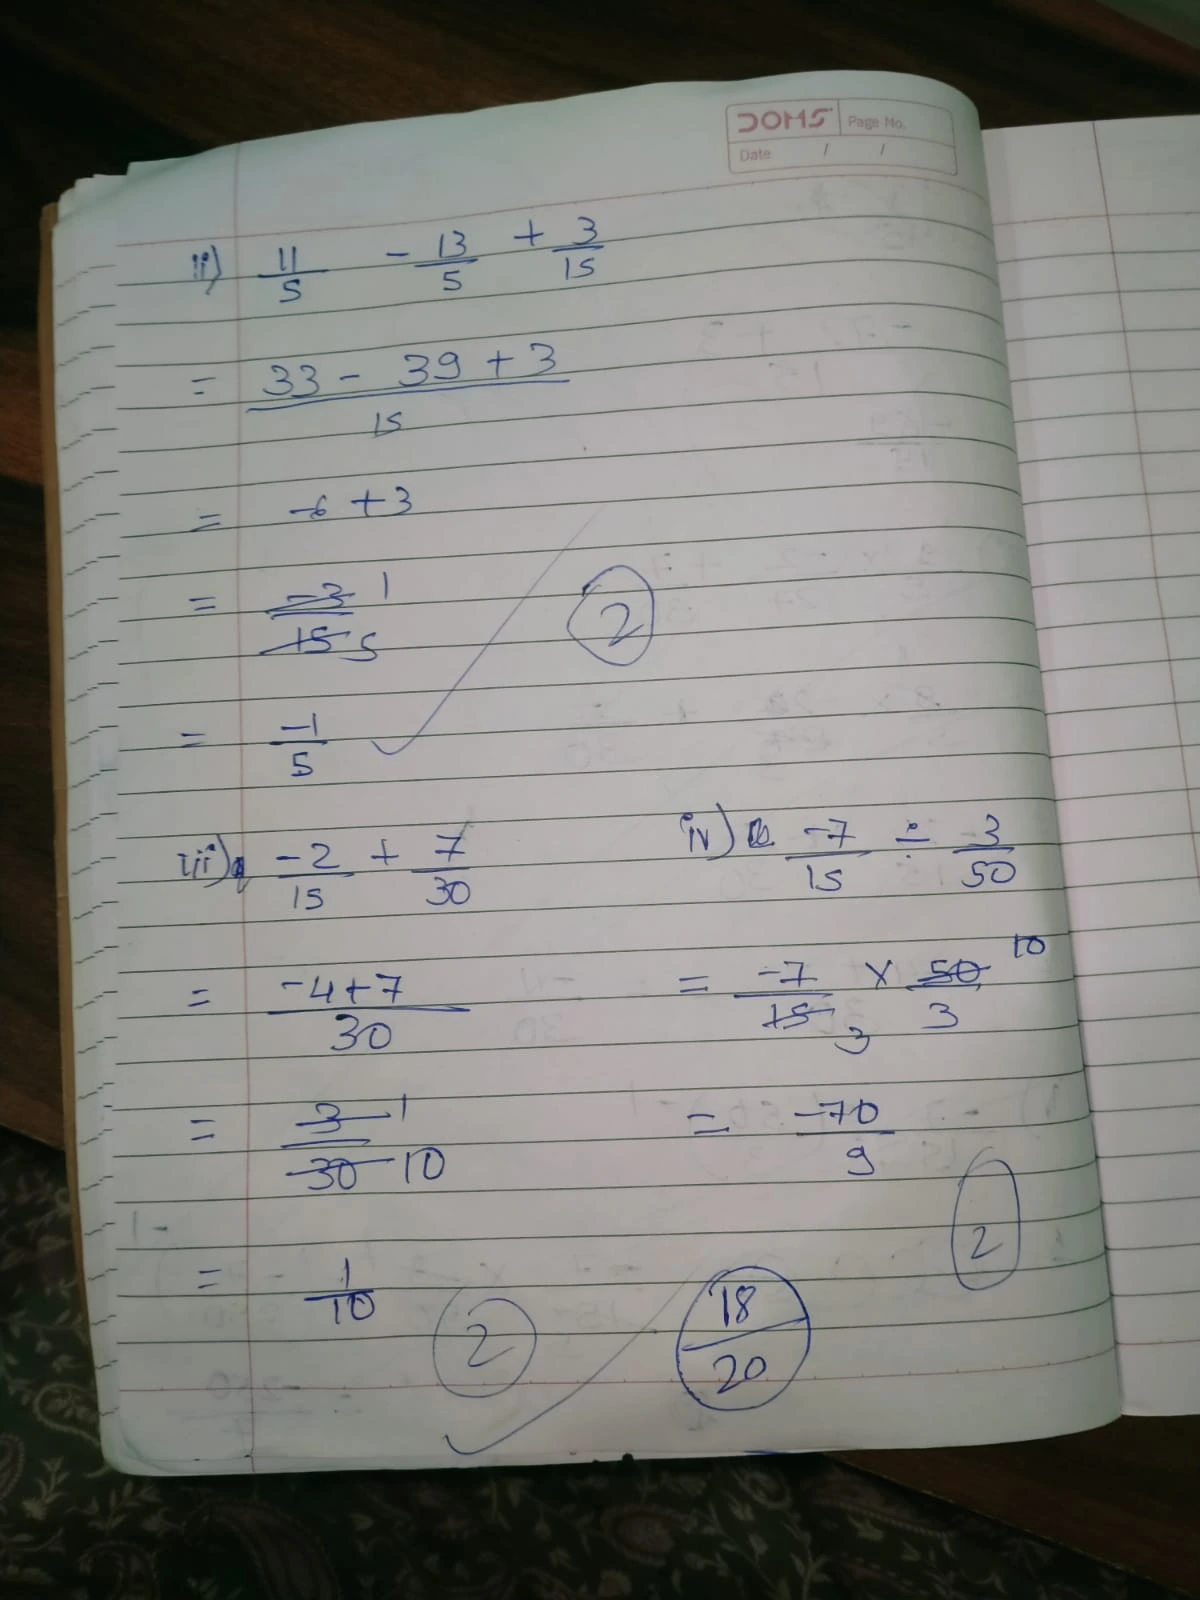 DOMS Page No.
Date / /
ii) 11/5 - 13/5 + 3/15
= 33 - 39 + 3 / 15
= -6 + 3
= -3 1 / 15 5
= -1/5
2
iii) -2/15 + 7/30
= -4+7 / 30
= 3 1 / 30 10
= 1/10
2
iv) -7/15 ÷ 3/50
= -7/15 3 × 50 10 / 3
= -70/9
2
18/20